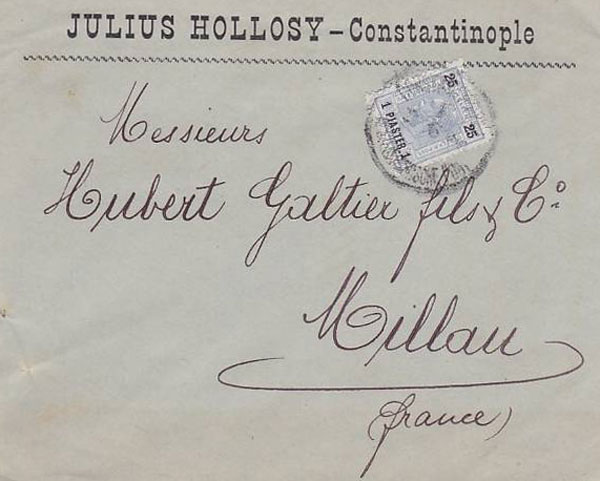 JULIUS HOLLOSY – Constantinople
25 25
1 PIASTER 1
Messieurs
Hubert Galtier fils & Cº
Millau
(france)